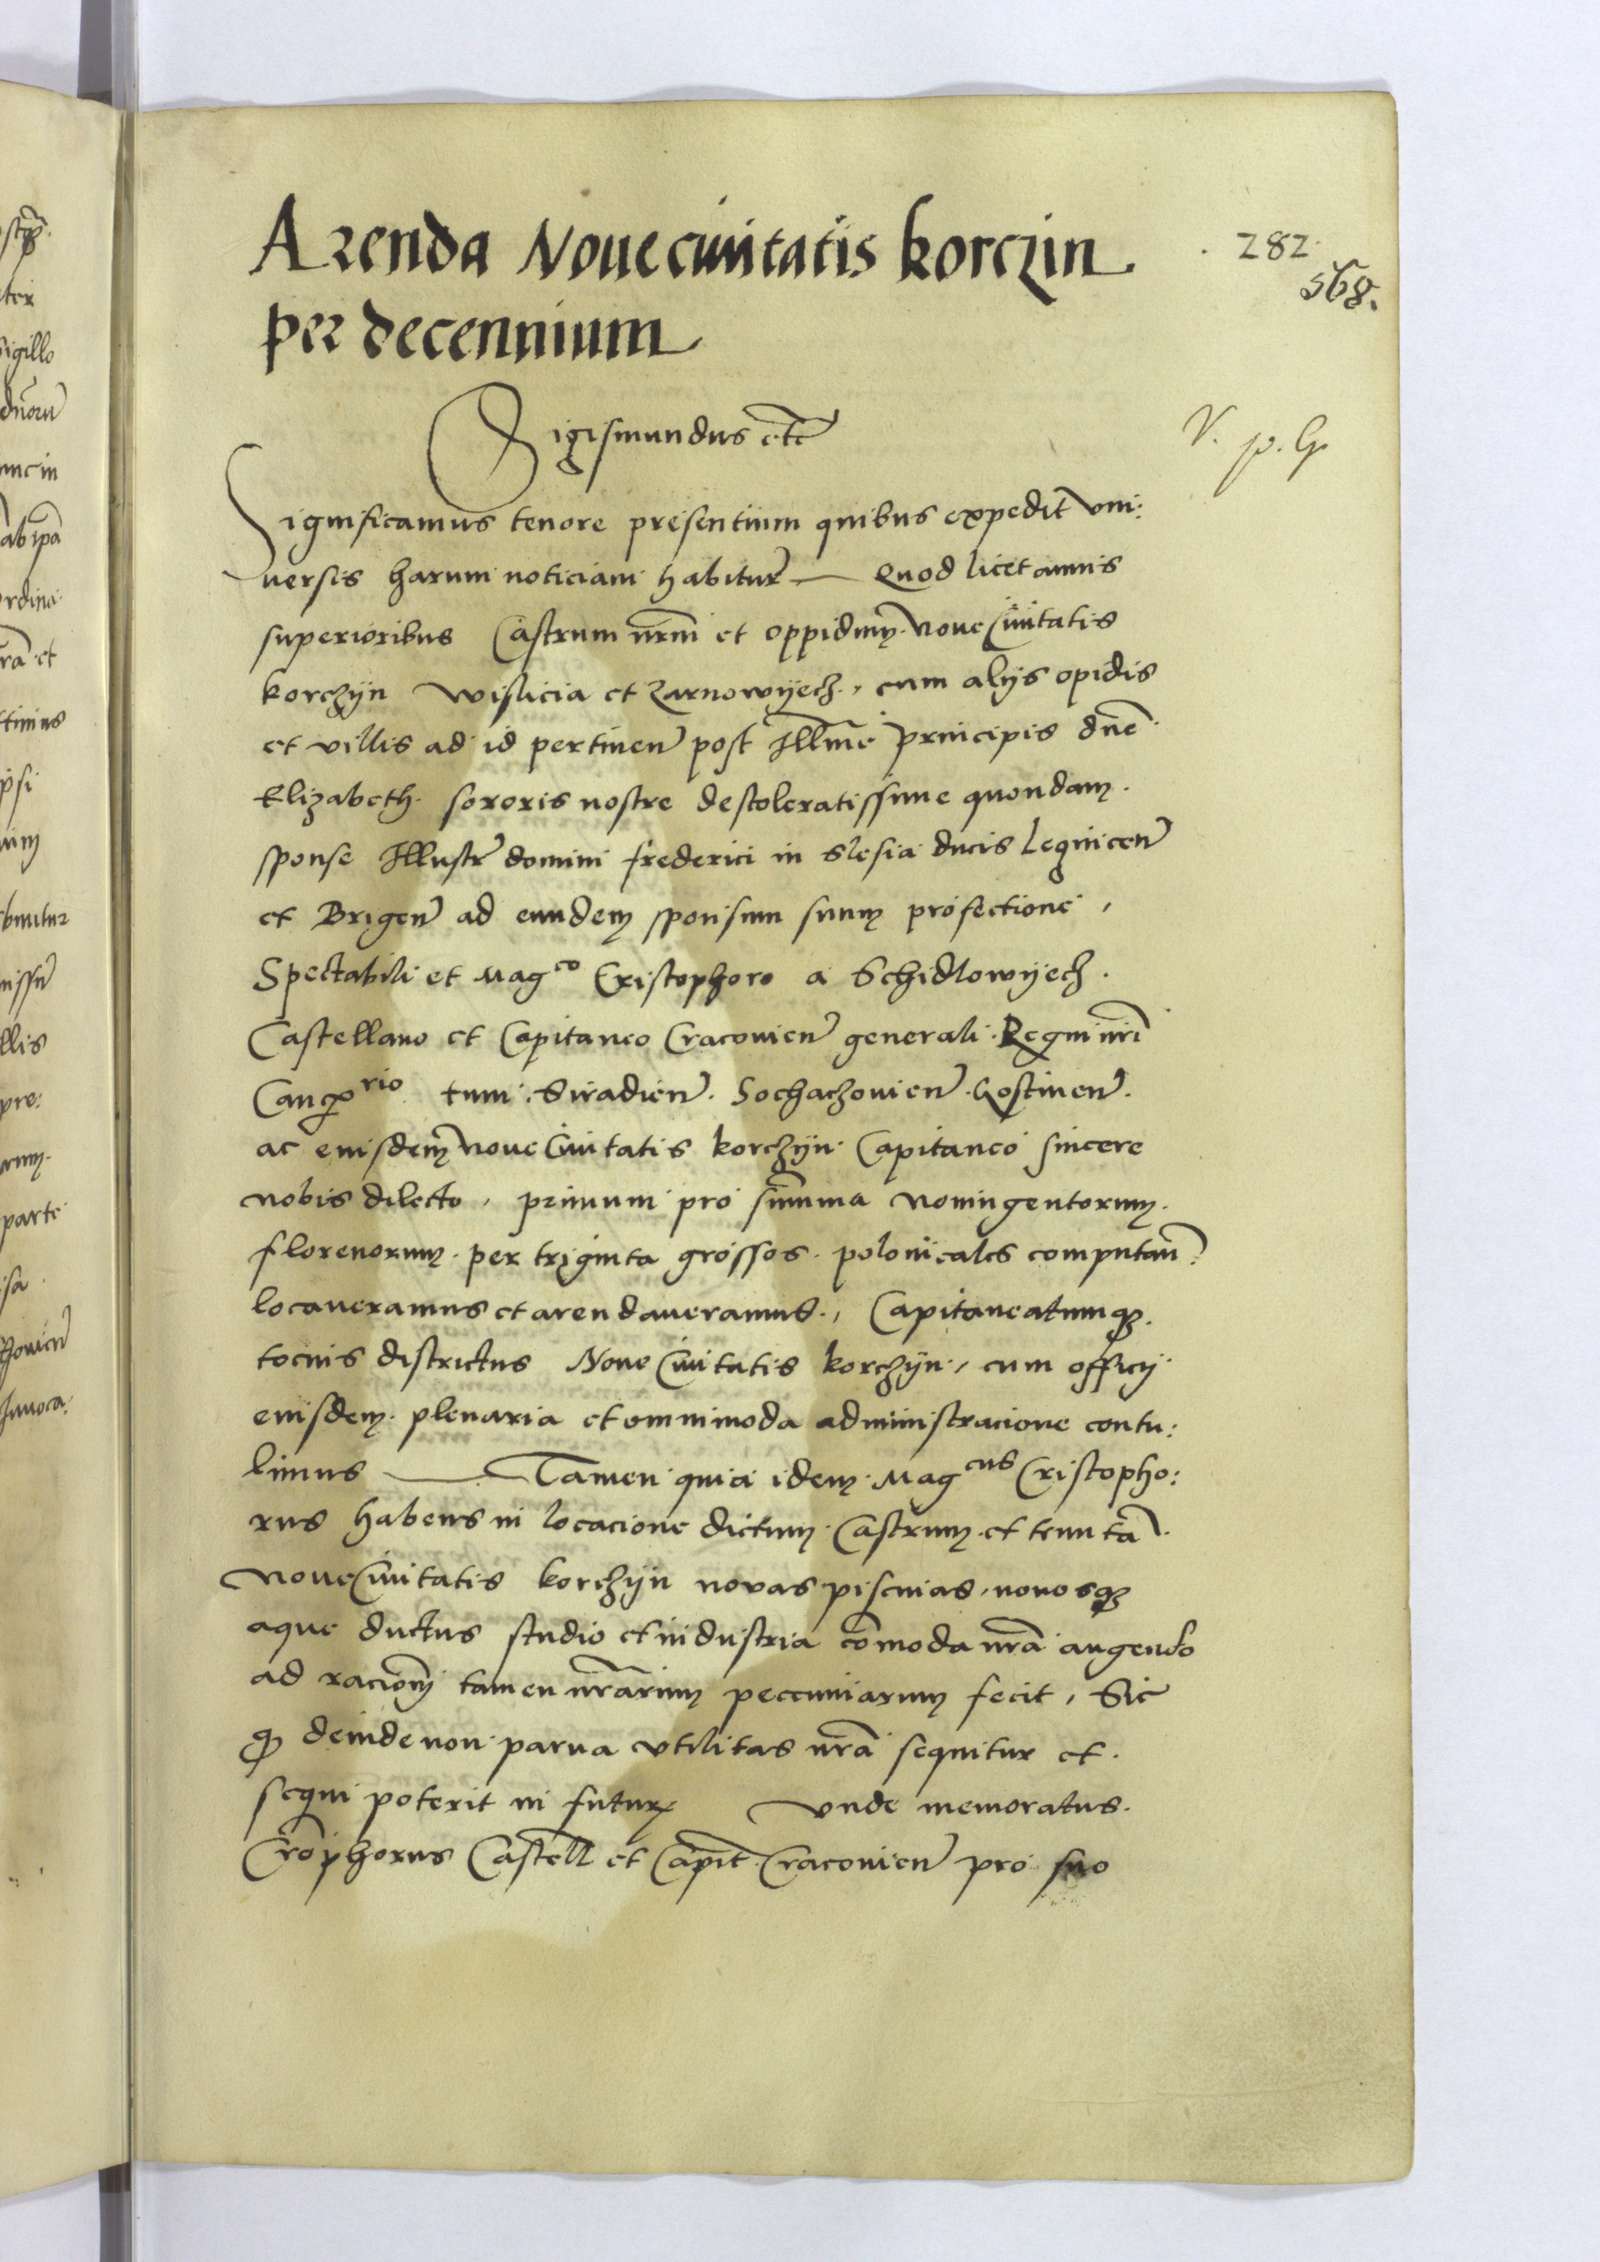 Arenda Noue ciuitatis korczin
per decennium
282
568.
V. p. G
Sigismundus etc̄
Significamus tenore presentium quibus expedit vni:
uersis harum noticiam habitur̄ — Quod licet annis
superioribus Castrum nr̄m et oppidum noue Ciuitatis
korczijn wislicia et zarnowijech, cum alijs opidis
et villis ad id pertinen̄ post Illm̄e principis dn̄e
Elizabeth sororis nostre desideratissime quondam
sponse Illustr̄ domini frederici in Slesia ducis Legnicen̄
et Brigen̄ ad eundem sponsum suum profectione,
Spectabili et Magco Cristophoro a Schidlowijech
Castellano et Capitaneo Cracouien̄ generali Regni nr̄i
Cancrio tum Siradien̄ Sochaczouien̄ Gostinen̄
ac eiusdem noue Ciuitatis korczijn Capitaneo sincere
nobis dilecto, primum pro sum̄a noningentorum
florenorum per triginta grossos polonicales computan̄
locaueramus et arendaueramus, Capitaneatumqȝ
tocius districtus Noue Ciuitatis korczijn, cum officij
eiusdem plenaria et omnimoda administracione contu:
limus — Tamen quia idem Magcus Cristopho:
rus habens in locacione dictum Castrum et tenutā
noue Ciuitatis korczijn novas piscinas, nouosqȝ
aque ductus studio et industria com̄oda nr̄a augendo
ad racionem tamen nr̄arum peccuniarum fecit, Sic
qȝ deinde non parua vtilitas nr̄a sequitur et
sequi poterit in futurum Vnde memoratus
Cr̄ophorus Castell et Capit̄ Cracouien̄ pro suo